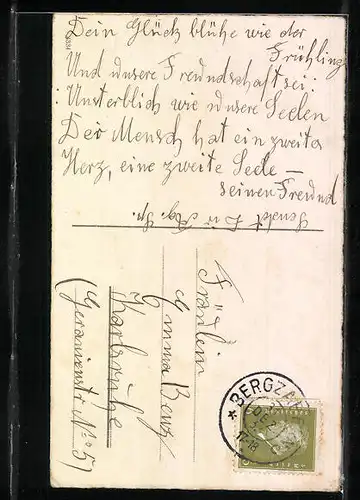 Dein Glück blühe wie der
Frühling
Und unsere Freundschaft sei:
Unsterblich wie unsere Seelen
Der Mensch hat ein zweites
Herz, eine zweite Seele —
seinen Freund
Fräulein
Emma Benz
Karlsruhe
(Geranienstr. No 5)
BERGZA